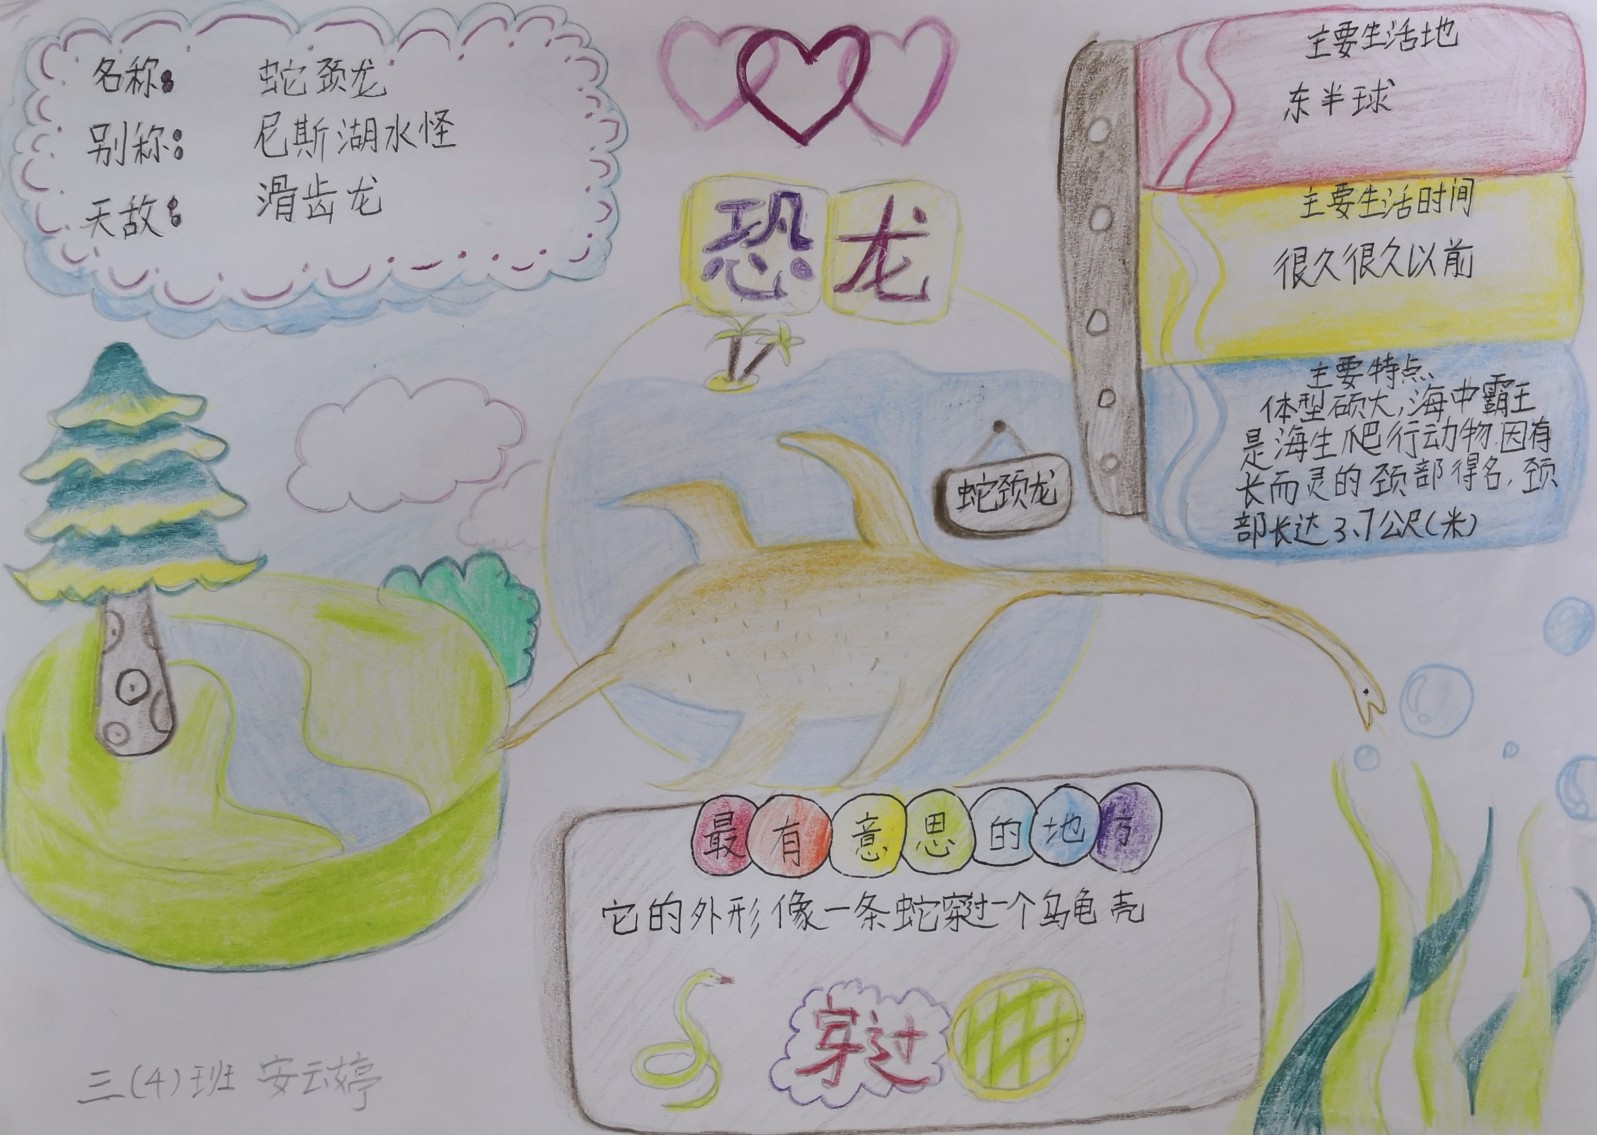 名称: 蛇颈龙
别称: 尼斯湖水怪
天敌: 滑齿龙
恐龙
主要生活地
东半球
主要生活时间
很久很久以前
主要特点、
体型硕大,海中霸王
是海生爬行动物.因有
长而灵的颈部得名.颈
部长达3.7公尺(米)
蛇颈龙
最有意思的地方
它的外形像一条蛇穿过一个乌龟壳
穿过
三(4)班 安云婷